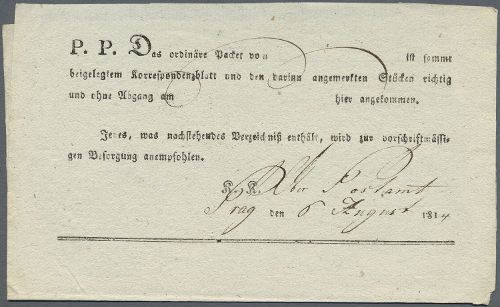 P. P. Das ordinäre Packet von ist sammt
beigelegtem Korrespondenzblatt und den darinn angemerkten Stücken richtig
und ohne Abgang am hier angekommen.
Jenes, was nachstehendes Verzeichniß enthält, wird zur vorschriftmässi-
gen Besorgung anempfohlen.
K. K. Ober Postamt
Prag den 6 August 1814